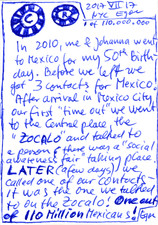 2017 VII 17
NYC Eryn
1 of 110.000.000
In 2010, me & Johanna went
to Mexico for my 50th birth-
day. Before we left we
got 3 contacts for Mexico!
After arrival in Mexico City,
our first "time out" we went
to the Central place the
"ZOCALO" and talked to
a person & there was a "social
awareness fair" taking place.
LATER (a few days) we
called one of our contacts -
it was the one we talked to
on the Zocalo! One out
of 110 Million Mexicans!